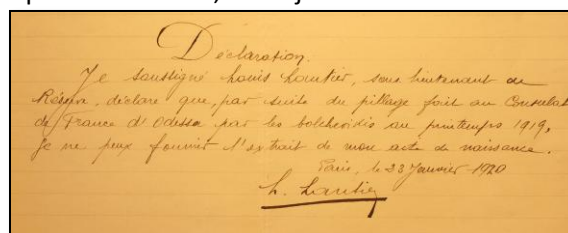 Déclaration.
Je soussigné Louis Lautier, sous lieutenant de
Réserve, déclare que, par suite du pillage fait au Consulat
de France d'Odessa par les bolchevistes au printemps 1919,
je ne peux fournir l'extrait de mon acte de naissance.
Paris, le 23 Janvier 1920
L. Lautier